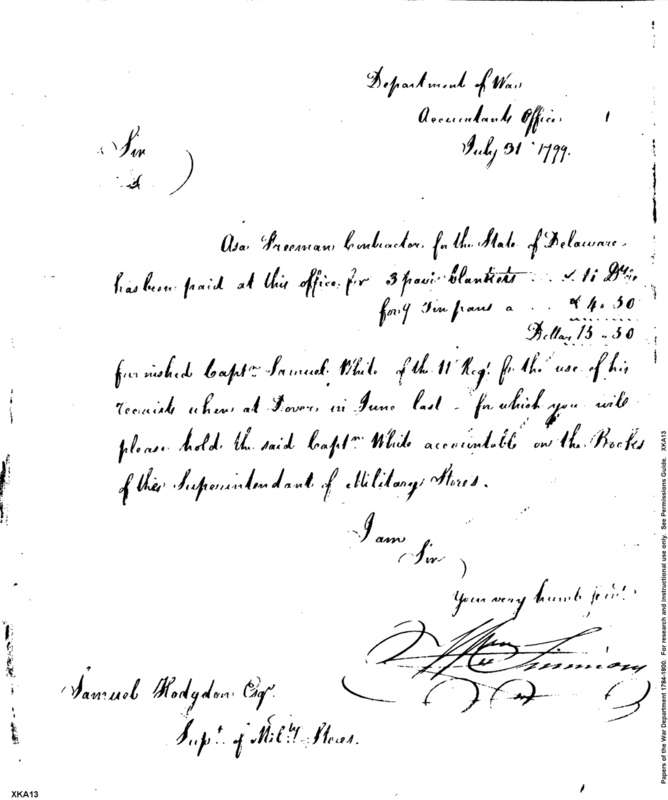 Department of War
Accountants Office
July 31st 1799.
Sir
Asa Freeman Contractor for the State of Delaware
has been paid at this office for 3 pair blankets
for 9 Tin pans a 4.50
Dollars 15.50
furnished Captn Samuel White of the 11 Regt for the use of his
recruits when at Dover in June last - for which you will
please hold the said Captn White accountable on the Books
of the Superintendant of Military Stores.
I am
Sir
Your very humb Servt
Wm Simmons
Samuel Hodgdon Esqr
Supt of Mily Stores.
XKA13
Papers of the War Department 1784-1800. For research and instructional use only. See Permissions Guide. XKA13